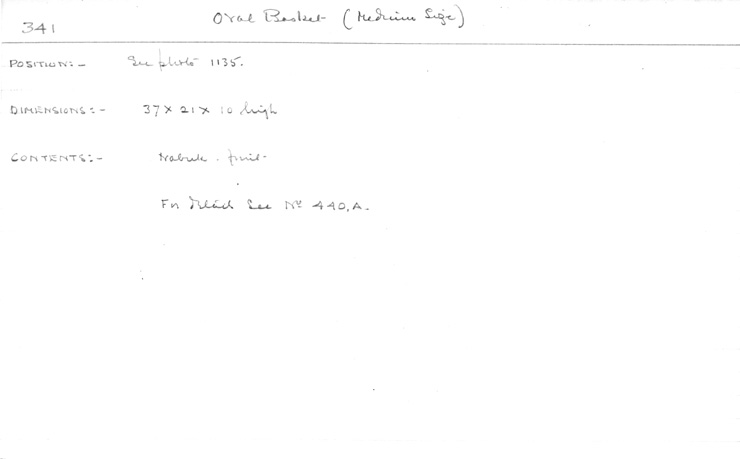 341
Oval Basket (Medium Size)
POSITION:- See photo 1135.
DIMENSIONS:- 37 x 21 x 10 high
CONTENTS:- Nabuk. fruit-
For Details See No 440, A.